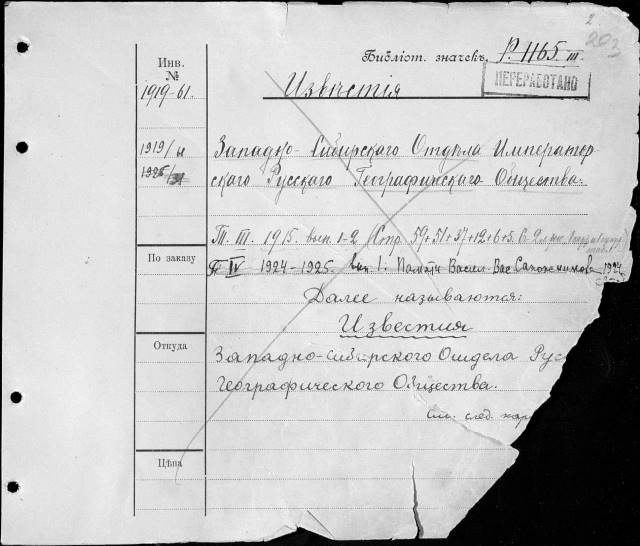 2.
203
Инв. №
Библіот. значекъ. P. 1165 III.
ПЕРЕРАБОТАНО
1919-61.
Извѣстія
1919/
1925/
Западно-Сибирскаго Отдѣла Император-
скаго Русскаго Географическаго Общества.
Т. III. 1915. вып. 1-2. (Стр. 59+51+37+12+6+5. С
По заказу
Т. IV 1924-1925. вып. 1. Памяти Васил. Вас. Сапожникова 1924
Далее называются:
Известия
Откуда
Западно-Сибирского Отдела Рус
Географического Общества.
см. след. кар
Цѣна